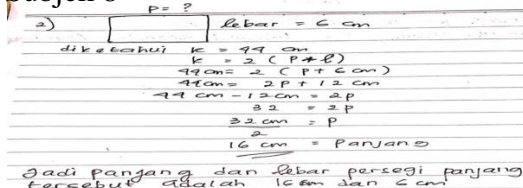 P = ?
2) lebar = 6 cm
diketahui k = 44 cm
k = 2 (P+l)
44 cm = 2 (P + 6 cm)
44 cm = 2P + 12 cm
44 cm - 12 cm = 2P
32 = 2P
32 cm = P
2
16 cm = Panjang
Jadi panjang dan lebar persegi panjang
tersebut adalah 16 cm dan 6 cm